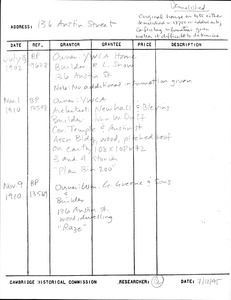 Demolished
ADDRESS: 136 Austin Street
Original house on site either
demolished
Conflicting information given
makes it difficult to determine
DATE REF. GRANTOR GRANTEE PRICE DESCRIPTION
July
1902
BP
Owner YWCA Home
Builder P. L. Snow
136 Austin St
Note: No additional information given
Nov. 1
1910
BP
Owner YWCA
Architect: Newhall & Blevins
Builder John W. Duff
Cor. Temple & Austin St
Assn Bldg, wood, pitched roof
on earth, 108 x 108 x 42
3 and 4 stories
"Plan Bin 200"
Nov 9
1910
BP
13569
Owner: Wm. C. Greene & Sons
& Builder
136 Austin St.
wood, dwelling
"Raze"
CAMBRIDGE HISTORICAL COMMISSION RESEARCHER: DATE: 7/12/95